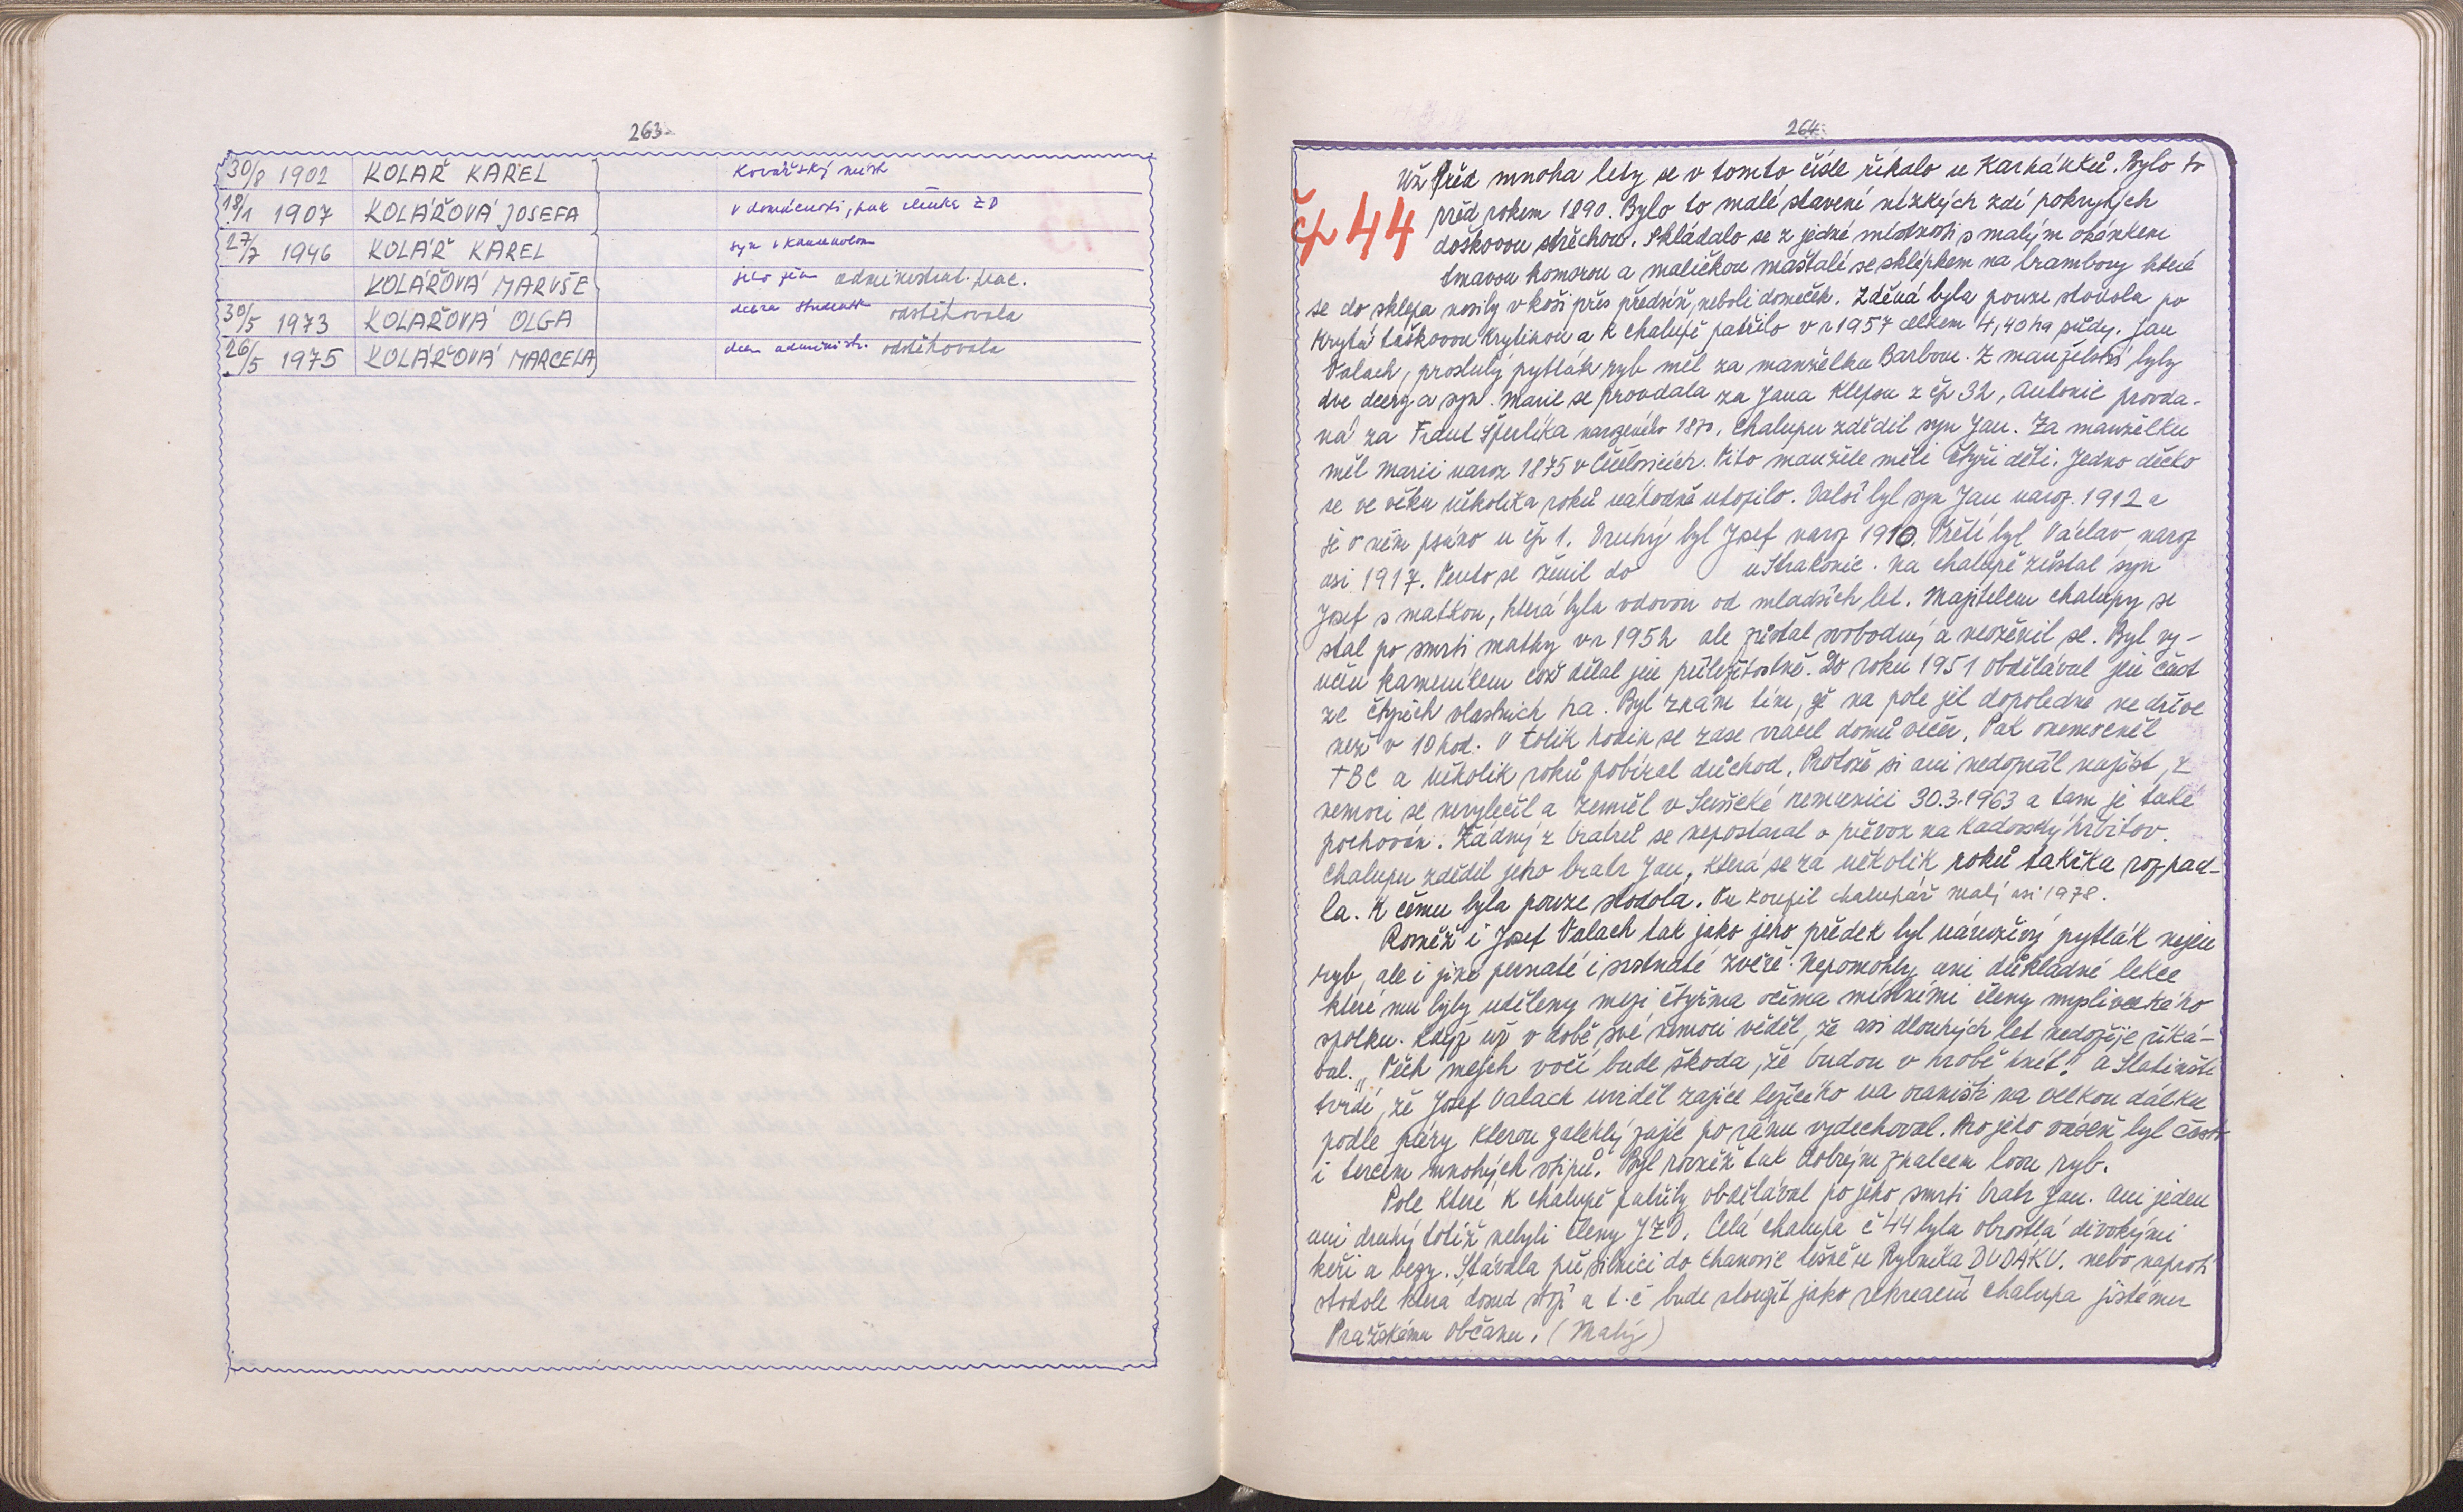 263
30/8 1902 KOLAŘ KAREL kovářský mistr
18/1 1907 KOLÁŘOVÁ JOSEFA v domácnosti, pak členka ZD
27/7 1946 KOLÁŘ KAREL syn v
KOLÁŘOVÁ MARUŠE jeho žena administrat. prac.
30/5 1973 KOLAŘOVÁ OLGA dcera studentk odstěhovala
26/5 1975 KOLÁŘOVÁ MARCELA dcera administr. odstěhovala
264
Už před mnoha lety se v tomto čísle říkalo u Karhánků. Bylo to
čp 44 před rokem 1890. Bylo to malé stavení nízkých zdí pokrytých
doškovou střechou. Skládalo se z jedné místnosti s malým okénkem
tmavou komorou a maličkou maštalí se sklípkem na brambory které
se do sklepa nosily v koši přes předsíň, neboli domeček. Zděná byla pouze stodola po
krytá taškovou krytinou a k chalupě patřilo v r 1957 celkem 4,40 ha půdy. Jan
Valach, proslulý pytlák ryb měl za manželku Barbou. Z manželství byly
dve dcery a syn. Marie se provdala za Jana Klepsu z čp 32, Antonie provda-
ná za Frant Šperlíka narozeného 1870. Chalupu zdědil syn Jan. Za manželku
měl Marii naroz 1875 v Čečelovicích. Tito manželé měli čtyři děti. Jedno děcko
se ve věku několika roků náhodně utopilo. Další byl syn Jan naroz. 1912 a
je o něm psáno u čp 1. Druhý byl Josef naroz 1910. Třetí byl Václav naroz
asi 1917. Tento se ženil do u Strakonic. Na chalupě zůstal syn
Josef s matkou, která byla vdovou od mladších let. Majitelem chalupy se
stal po smrti matky v r 1952 ale zůstal svobodný a neoženil se. Byl vy-
učen kameníkem což dělal jen příležitostně. Do roku 1951 obdělával jen část
ze čtyřech vlastních ha. Byl znám tím, že na pole jel dopoledne ne dříve
než v 10 hod. V tolik hodin se zase vracel domů večer. Pak onemocněl
TBC a několik roků pobíral důchod. Protože si ani nedopřál najíst, z
nemoci se nevyléčil a zemřel v Sušické nemocnici 30.3.1963 a tam je také
pochován. Žádný z bratrů se nepostaral o převoz na Kadovský hřbitov.
Chalupu zdědil jeho bratr Jan, která se za několik roků takřka rozpad-
la. K čemu byla pouze stodola. Tu koupil chalupář Malý asi 1978.
Rovněž i Josef Valach tak jako jeho předek byl náruživý pytlák nejen
ryb, ale i jiné pernaté i srstnaté zvěře. Nepomohly ani důkladné lekce
které mu byly uděleny mezi čtyřma očima místními členy mysliveckého
spolku. Když už v době své nemoci věděl, že asi dlouhých let nedožije říká-
val. „Těch mejch vočí bude škoda, že budou v hrobě hnít." a Slatinští
tvrdí, že Josef Valach uviděl zajíce ležícího na oraništi na velkou dálku
podle páry kterou zalehlý zajíc po ránu vydechoval. Pro jeho vášeň byl často
i terčem mnohých vtipů. Byl rovněž tak dobrým znalcem lovu ryb.
Pole které k chalupě patřily obdělával po jeho smrti bratr Jan. Ani jeden
ani druhý totiž nebyli členy JZD. Celá chalupa č 44 byla obrostlá divokými
keři a bezy. Stávala při silnici do Chanovic těsně u Rybníka DUDÁKU. nebo naproti
stodole která dosud stojí a t.č bude sloužit jako rekreační chalupa jistému
Pražskému občanu. (Malý)